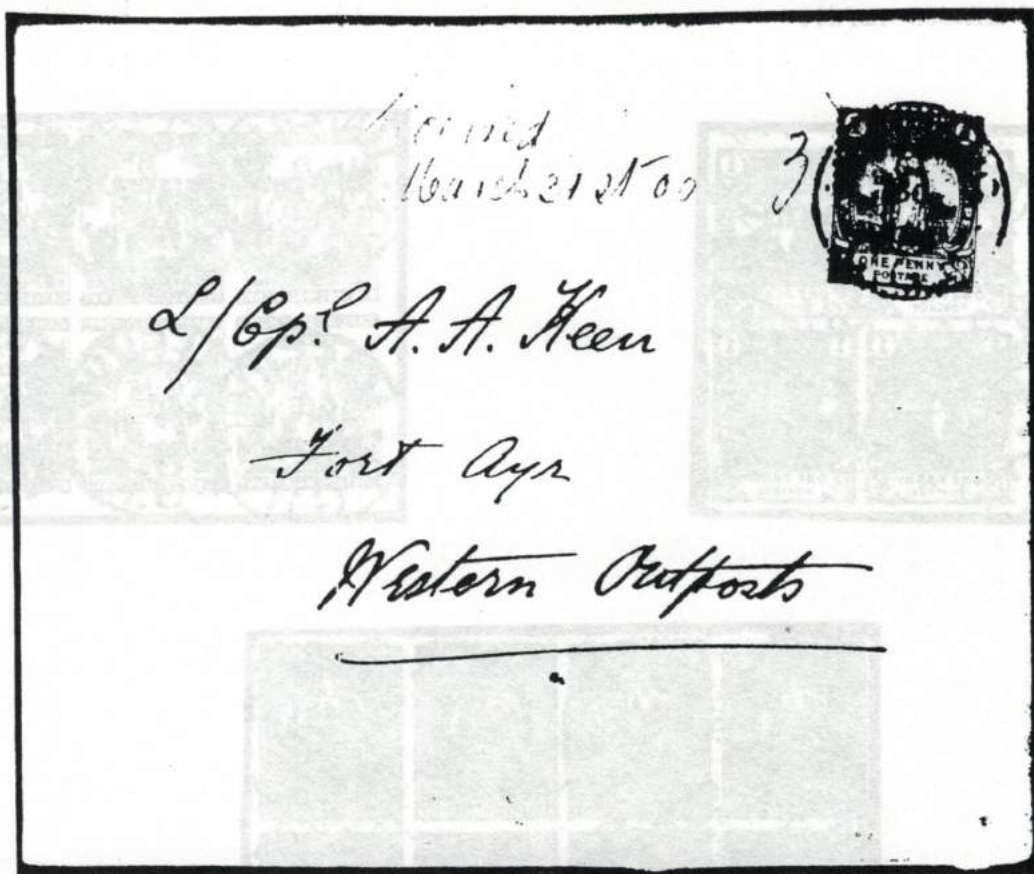 March 21st 00
3
ONE PENNY
POSTAGE
L/Cpl A. A. Keen
Fort Ayr
Western Outposts